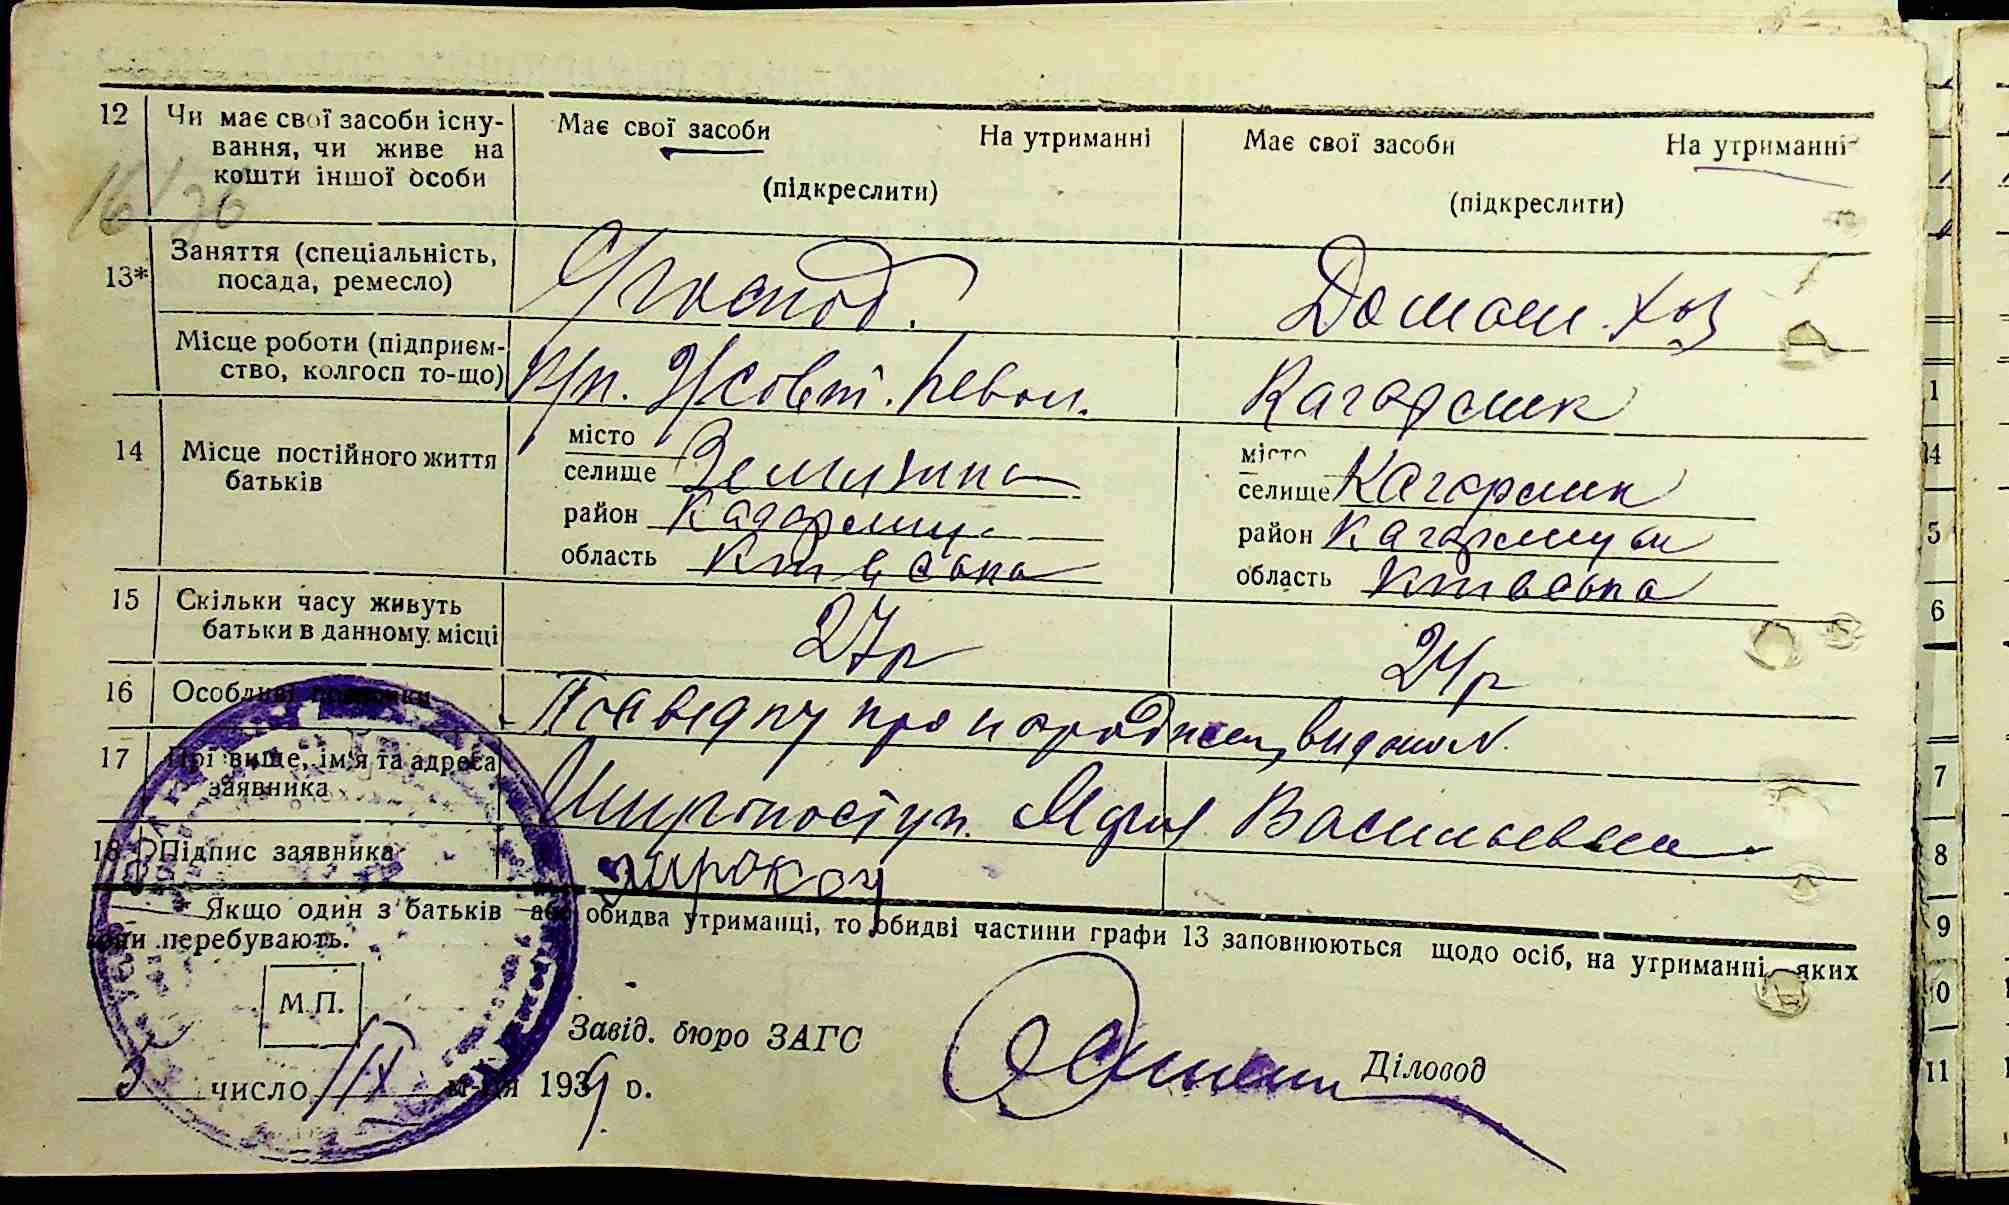 12 Чи має свої засоби існу- Має свої засоби На утриманні Має свої засоби На утриманні
вання, чи живе на
кошти іншої особи (підкреслити) (підкреслити)
16/36
13* Заняття (спеціальність,
посада, ремесло) Домаш. хоз
Місце роботи (підприєм-
ство, колгосп то-що) Жовт. Револ. Кагарлик
14 Місце постійного життя
батьків
місто місто
селище селище Кагарлик
район Кагарлиц. район Кагарлицьк
область Київська область Київська
15 Скільки часу живуть
батьки в данному місці 27р 24р
16 Особливі Довідку про народжен, видано №
17 Прізвище, ім'я та адреса
заявника Васильевна
18 Підпис заявника
* Якщо один з батьків або обидва утриманці, то обидві частини графи 13 заповнюються щодо осіб, на утриманні яких
вони перебувають.
М.П.
Завід. бюро ЗАГС Діловод
3 число IX м-ця 1939 р.
1
14
5
6
7
8
9
10
11